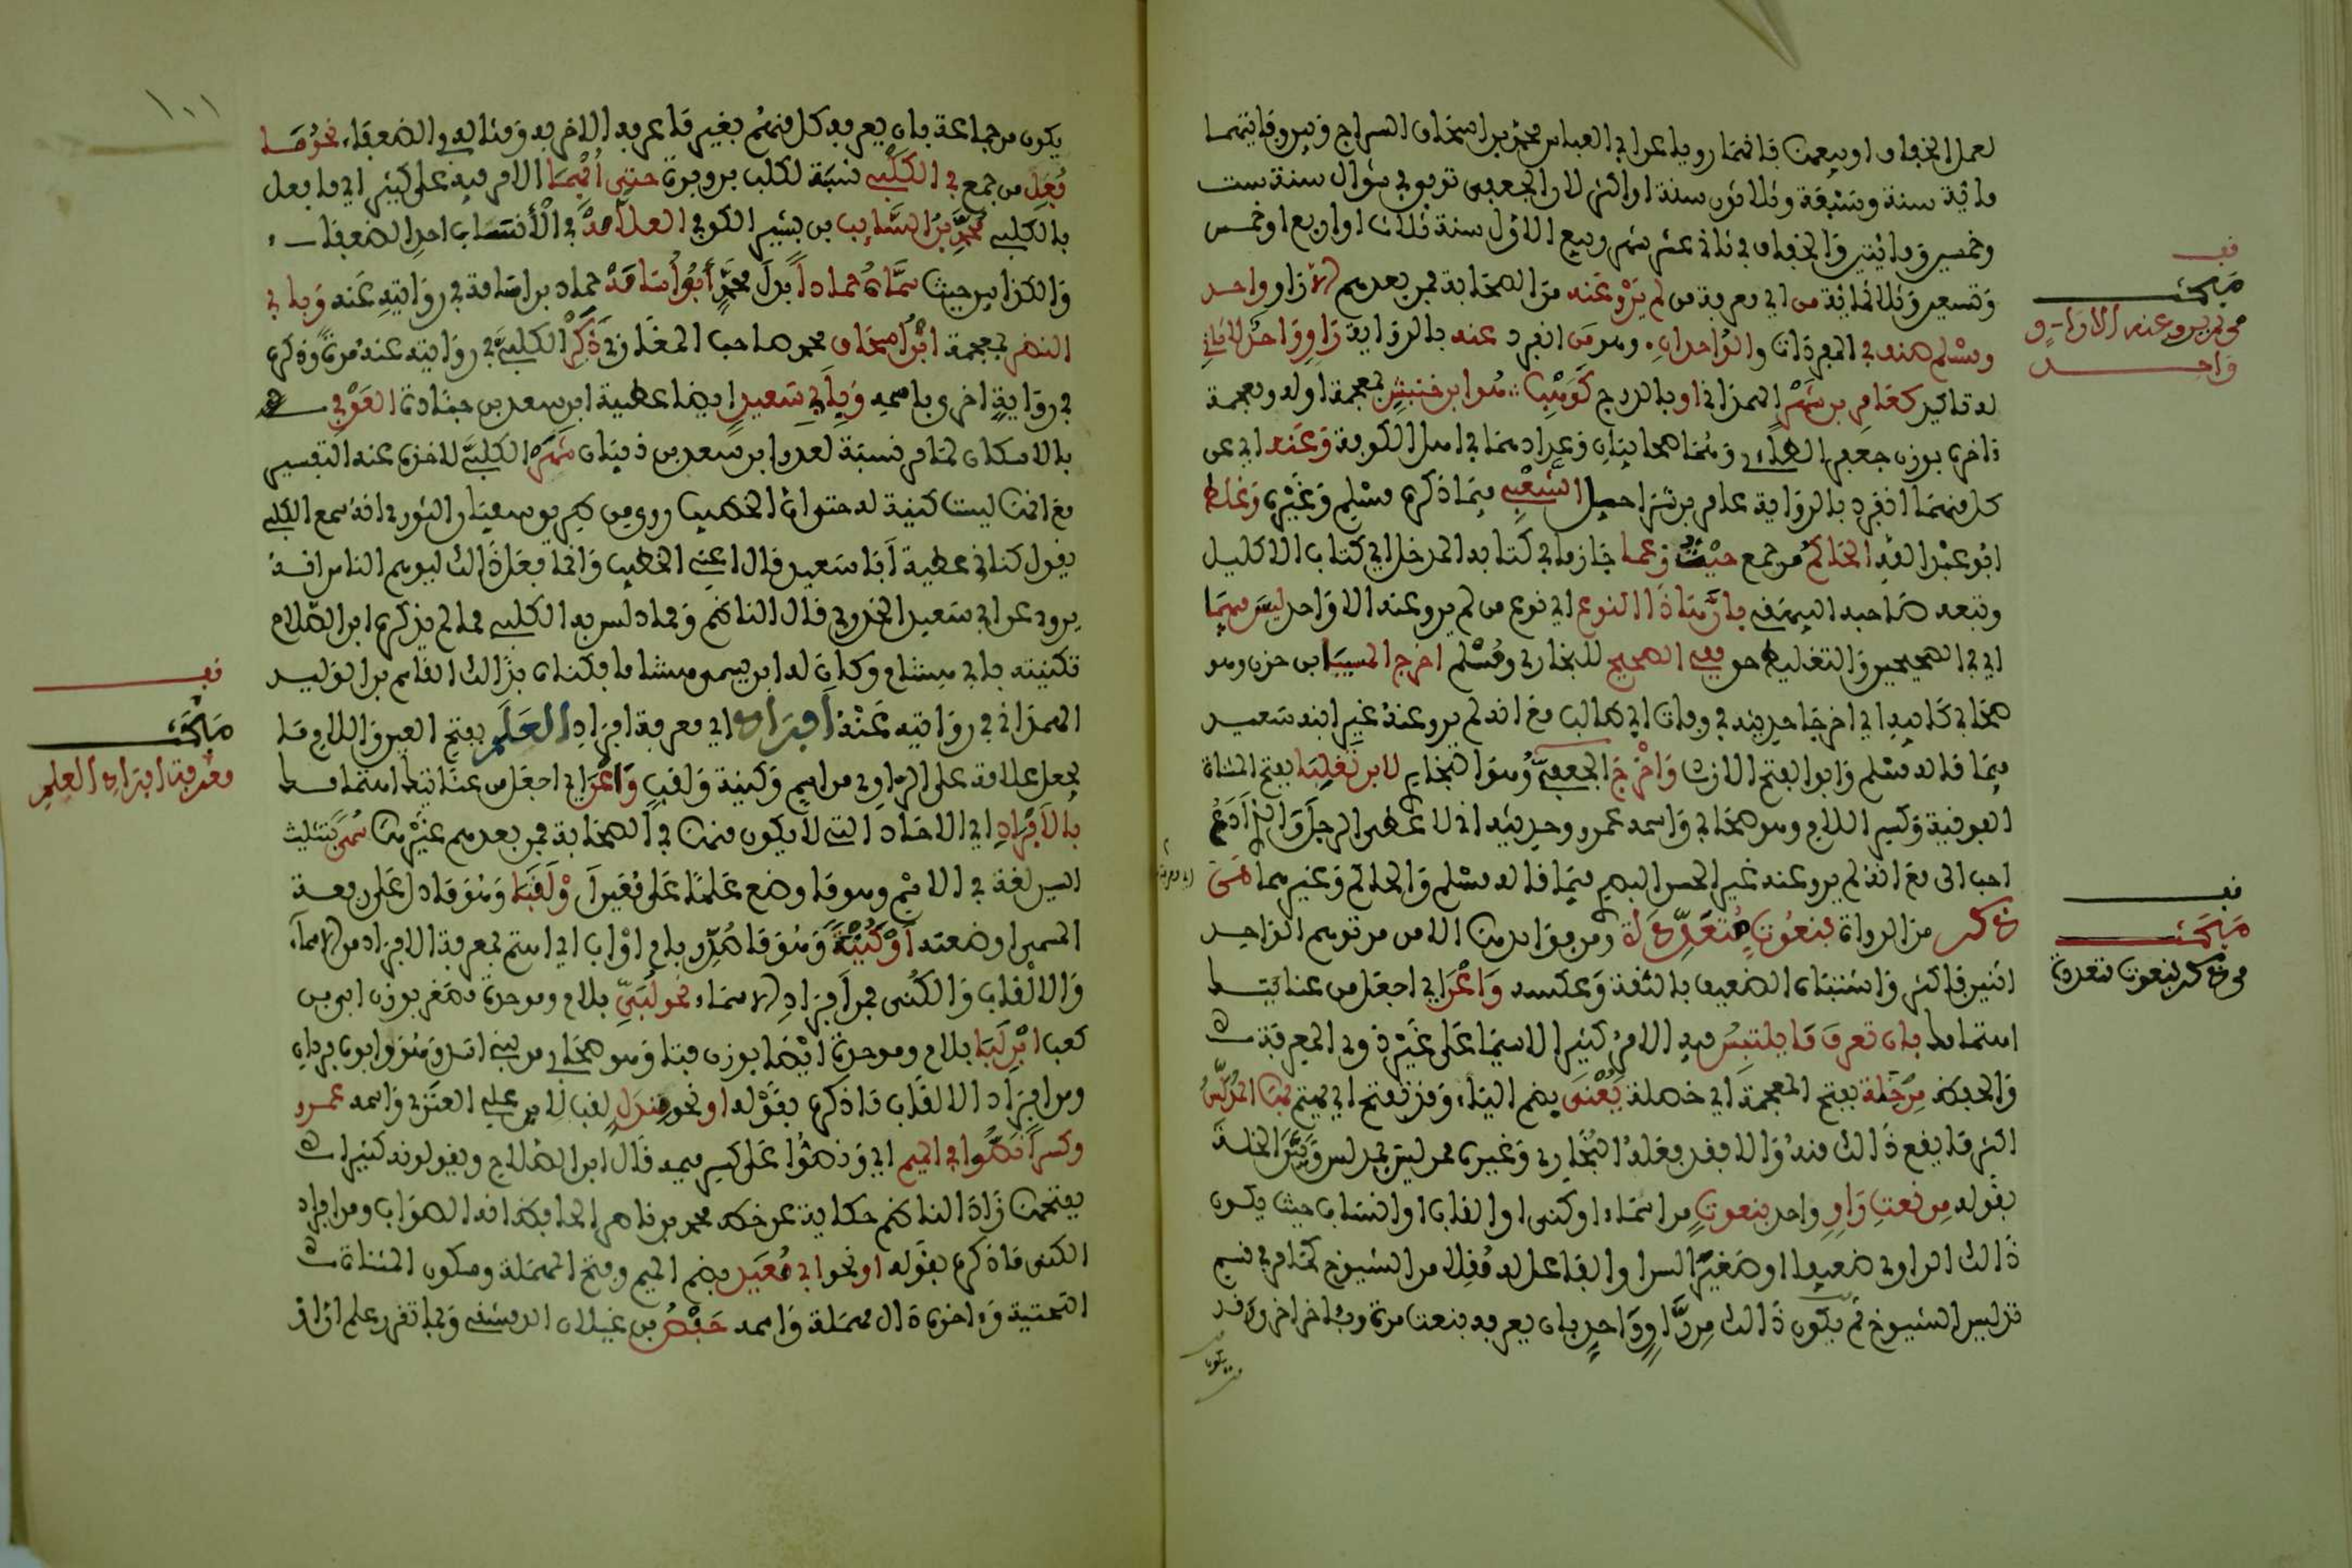 لعمل الخفاف او بيعها فانهما رويا عن ابي العباس محمد بن اسحاق السراج وبين وفاتيهما
مائة سنة وسبعة وثلاثون سنة او اكثر لان الجعفي توفي في شوال سنة ست
وخمسين ومائتين والخفاف في ثاني عشر شهر ربيع الاول سنة ثلاث او اربع او خمس
وتسعين وثلاثمائة من اي معرفة من لم يرو عنه من الصحابة فمن بعدهم الا راو واحد
ومسلم صنف في المفردات والوحدان وهو من انفرد عنه بالرواية راو واحد لا ثاني
له تاكيد كعامر بن شهر الهمذاني او بالدرج كوهب هو ابن خنبش بمعجمة اوله ومعجمة
ءاخره بوزن جعفر الطاءي وهما صحابيان وعدادهما في اهل الكوفة وعنه اي عن
كل منهما انفرد بالرواية عامر بن شراحيل الشعبي فيما ذكره مسلم وغيره وغلط
ابو عبد الله الحاكم من جمع حيث زعما جازما في كتابه المدخل الى كتاب الاكليل
وتبعه صاحبه البيهقي بان هذا النوع اي نوع من لم يرو عنه الا واحد ليس فيهما
اي في الصحيحين والتغليط حق ففي الصحيح للبخاري ومسلم اخرج المسيبا ابن حزن وهو
صحابي كابيه اي اخرجا حديثه في وفات ابي طالب مع انه لم يرو عنه غير ابنه سعيد
فيما قاله مسلم وابو الفتح الازدي واخرج الجعفي وهو البخاري لابن تغلبا بفتح المثناة
الفوقية وكسر اللام وهو صحابي واسمه عمرو وحديثه اني لاعطي الرجل والذي ادع
احب الي مع انه لم يرو عنه غير الحسن البصري فيما قاله مسلم والحاكم وغيرهما من
ذكر من الرواة بنعوت متعددة ومن فوائدها الامن من توهم الواحد
اثنين فاكثر واشتباه الضعيف بالثقة وعكسه واعن اي اجعل من عنايتك
اهتمامك بان تعرف ما يلتبس فيه الامر كثيرا لاسيما على غير ذوي المعرفة
والحفظ من خلة بفتح المعجمة اي خصلة يعنى بضم الياء وقد تفتح اي يهتم بها المدلس
اكثر ما يقع ذالك منه والا فقد فعله البخاري وغيره ممن ليس بمدلس وبين الخلة
بقوله من نعت راو واحد بنعوت من اسماء او كنى او القاب او انساب حيث يكون
ذالك الراوي ضعيفا او صغير السن او الفاعل له مقلا من الشيوخ كما مر في قسم
تدليس الشيوخ ثم يكون ذالك من راو واحد بان يعرفه بنعت مرة وباخر اخرى وقد
يكون
قف
مبحث
من لم يرو عنه الا راو
واحد
قف
مبحث
من ذكر بنعوت متعددة
١٠١
يكون من جماعة بان يعرفه كل منهم بغير ما عرفه الاخر به ومثاله في الضعفاء نحو ما
فعل من جمع في الكلبي نسبة لكلب بن وبرة حتى ابهما الامر فيه على كثير اي ما فعل
بالكلبي محمد بن السايب بن بشير الكوفي العلامة في الانساب احد الضعفاء
والكذابين حيث سماه حمادا بدل محمد ابو اسامة حماد بن اسامة في روايته عنه وبابي
النضر بمعجمة ابن اسحاق محمد صاحب المغازي ذكر الكلبي في روايته عنه مرة وذكره
في رواية اخرى باسمه وبابي سعيد ايضا عطية ابن سعد بن جنادة العوفي
بالاسكان لما مر نسبة لعوف ابن سعد بن ذبيان شهر الكلبي لاخذه عنه التفسير
مع انها ليست كنية له حتى ان الخطيب روى من طريق سفيان الثوري انه سمع الكلبي
يقول كناني عطية ابا سعيد قال اعني الخطيب وانما فعل ذالك ليوهم الناس انه
يروي عن ابي سعيد الخدري قال الناظم ومما دلس به الكلبي مما لم يذكره ابن الصلاح
تكنيته بابي هشام وكان له ابن يسمى هشاما فكناه بذالك القاسم بن الوليد
الهمذاني في روايته عنه افراد اي معرفة افراد العلم بفتح العين واللام وما
يجعل علامة على الراوي من اسم وكنية ولقب واعن اي اجعل من عنايتك اهتمامك
بالافراد اي الاحاد التي لا يكون منها في الصحابة فمن بعدهم غيرها سمى بتثليث
السين لغة في الاسم وهو ما وضع علما على معين او لقبا وهو ما دل على رفعة
المسمى او ضعته او كنية وهو ما صدر بام او اب اي اهتم لمعرفة الافراد من الاسماء
والالقاب والكنى فمن افراد الاسماء نحو لبي بلام وموحدة مصغر بوزن ابي بن
كعب ابن لبا بلام وموحدة ايضا بوزن فتا وهو صحابي من بني اسد وهو وابوه فردان
ومن افراد الالقاب ما ذكره بقوله او نحو مندل لقب لابن علي العنزي واسمه عمرو
وكسرا نصوا في الميم اي ونصوا على كسر ميمه قال ابن الصلاح ويقولونه كثيرا
بفتحها زاد الناظم حكاية عن خط محمد بن ناصر الحافظ انه الصواب ومن افراد
الكنى ما ذكره بقوله او نحو ابي معيد بضم الميم وفتح المهملة وسكون المثناة
التحتية وءاخره دال مهملة واسمه حفص بن غيلان الدمشقي وبما تقرر علم ان افراد
قف
مبحث
معرفة افراد العلم